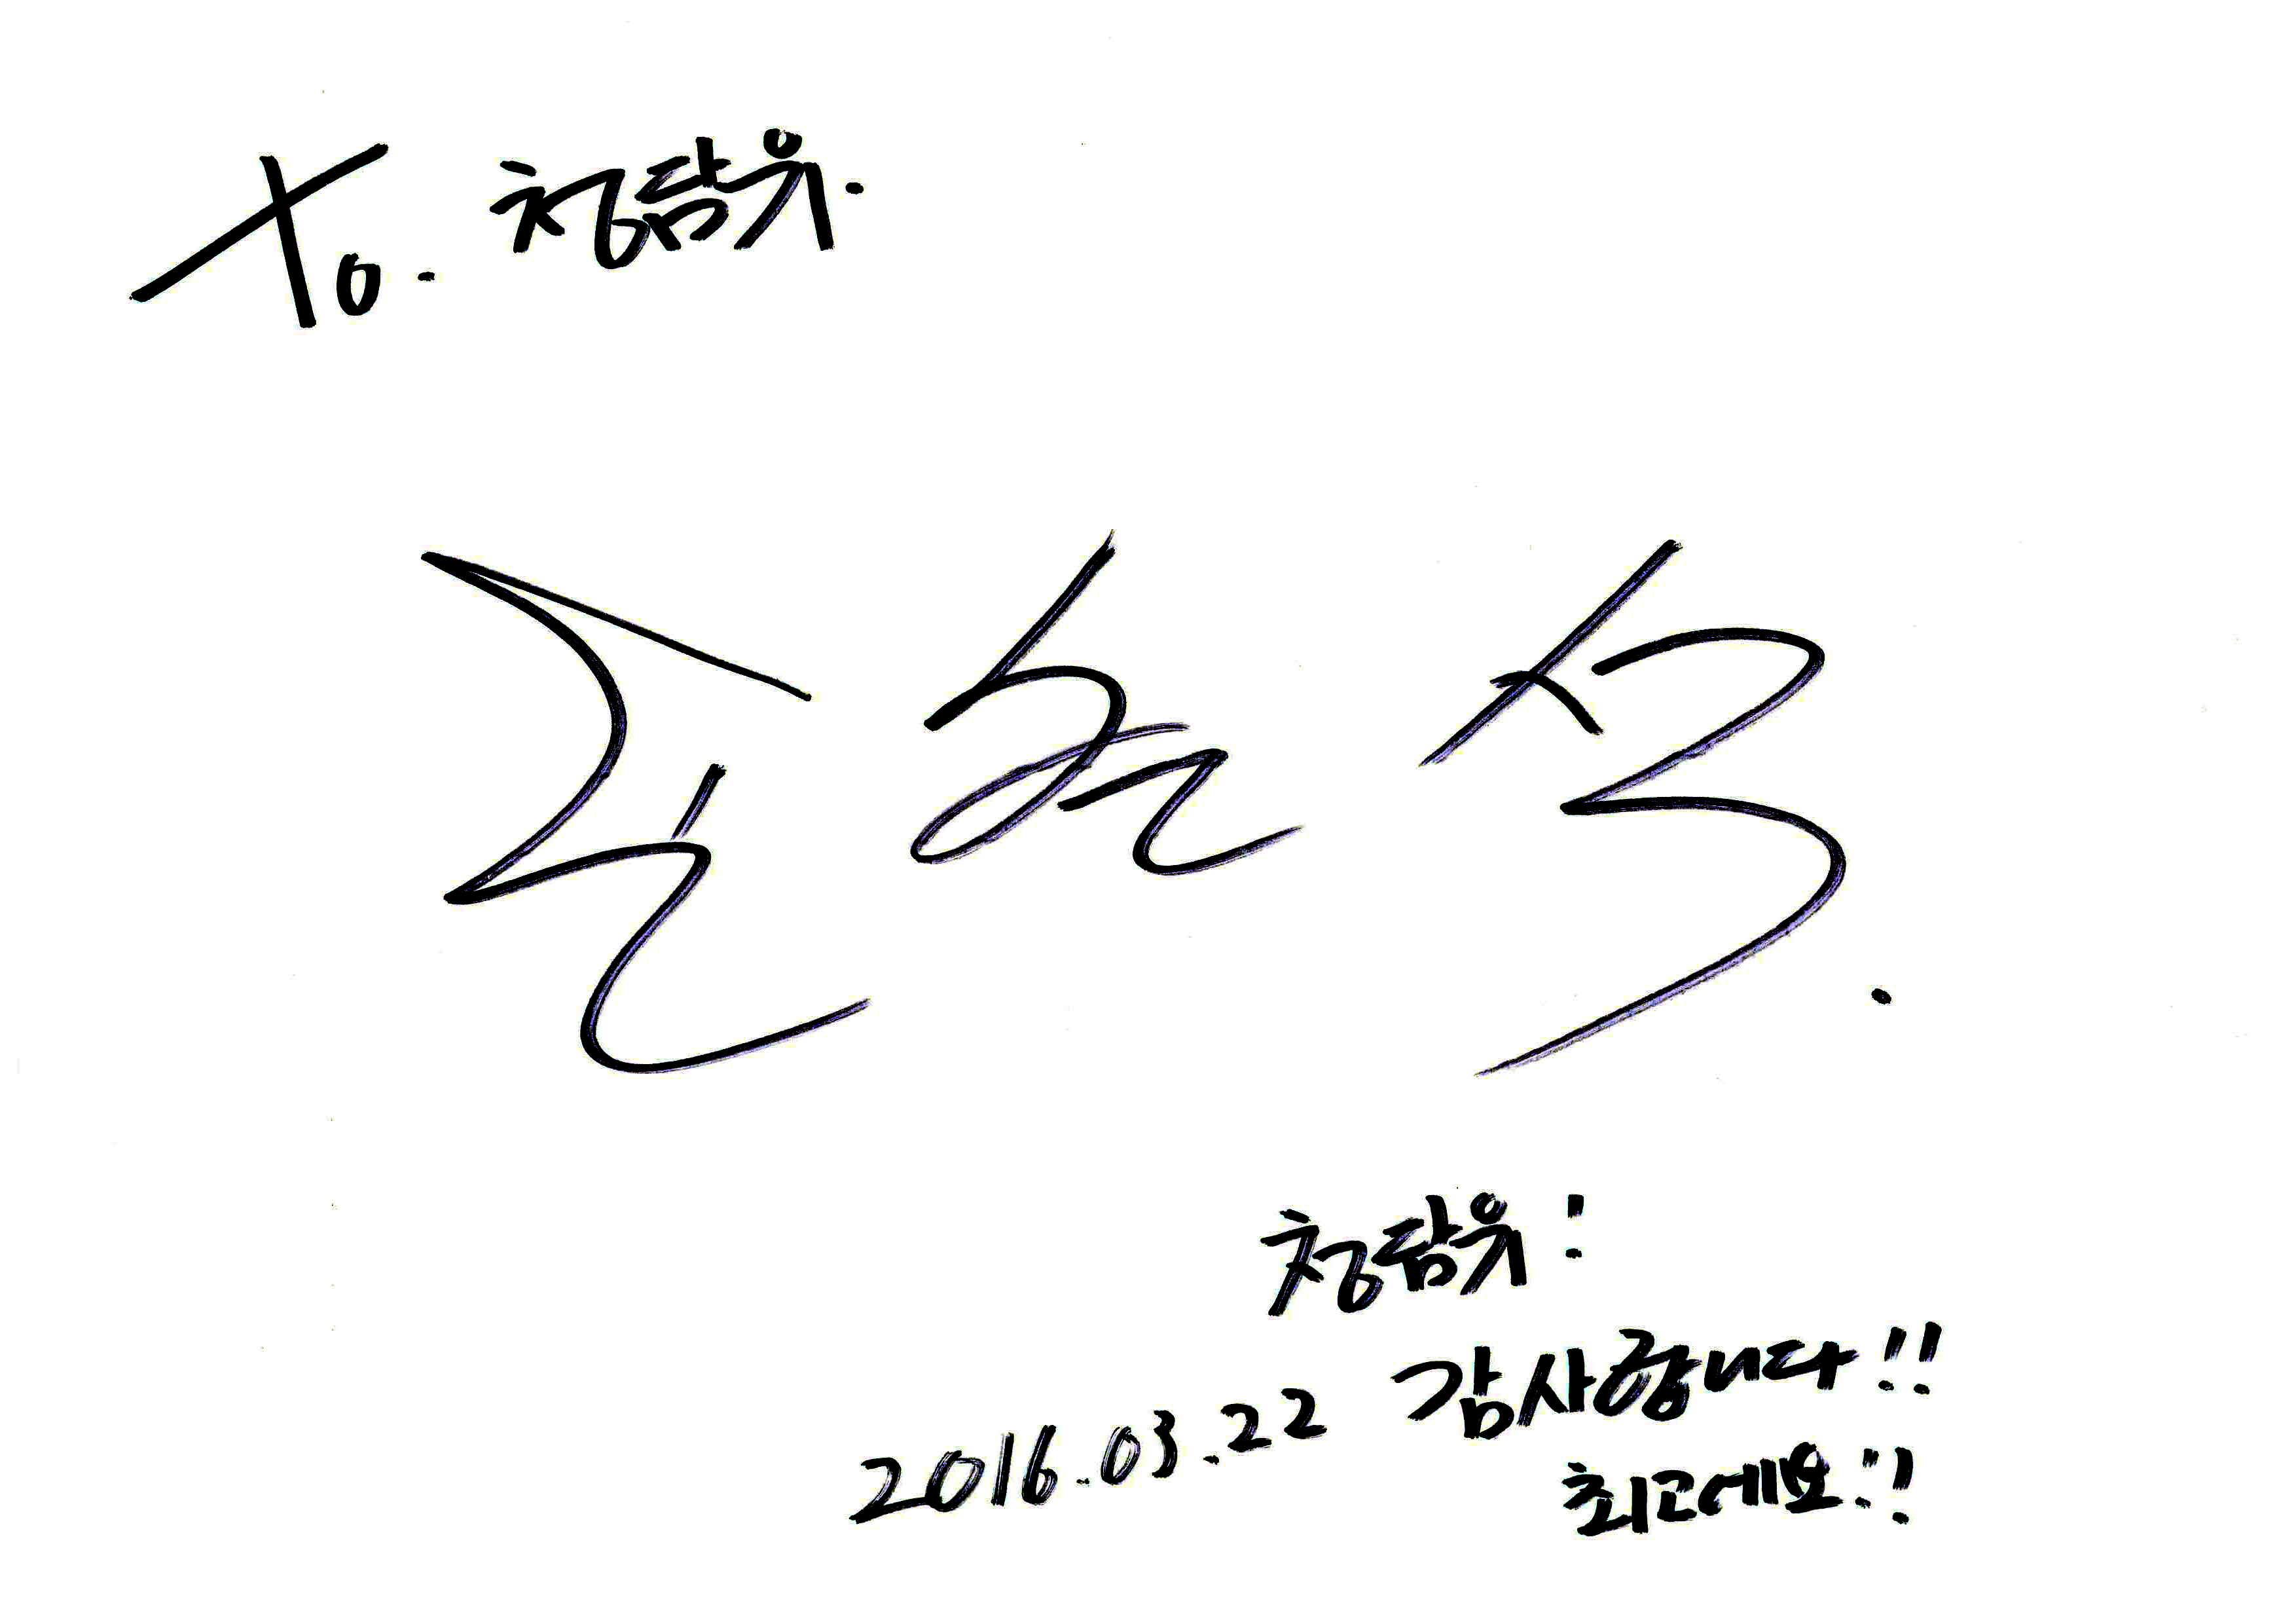 To. 청담유.
청담유!
감사합니다!!
2016.03.22
최고에요!!